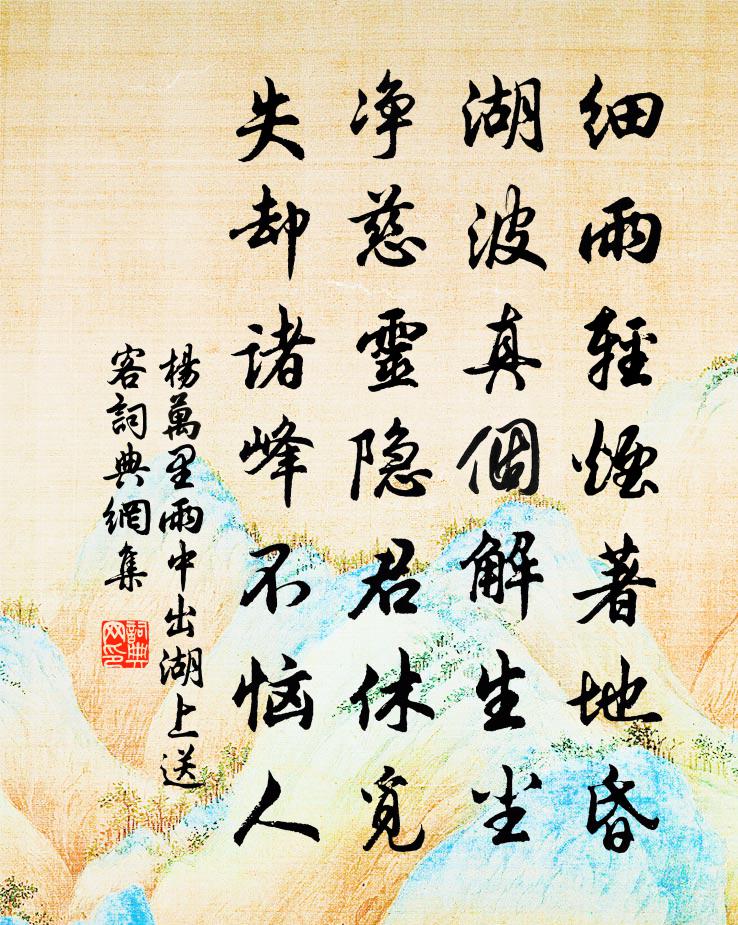 细雨輕煙著地昏
湖波真個解生尘
净慈靈隐君休觅
失却诸峰不恼人
楊萬里雨中出湖上送
客詞典網集
詞典
网印